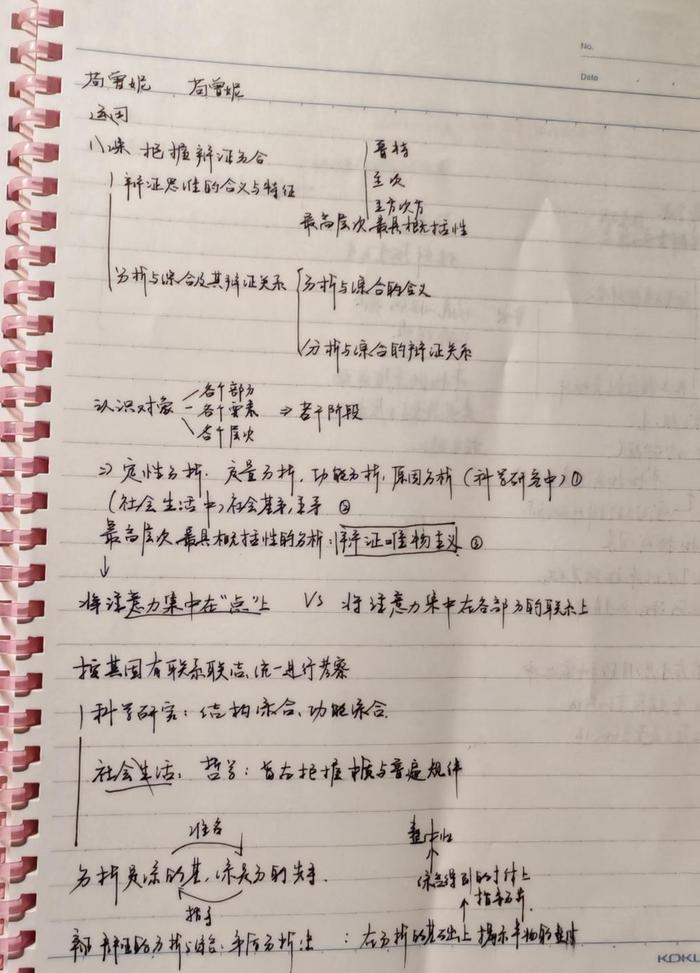 No.
Date
苟曾妮 苟曾妮
八课 把握辩证分合
普特
主次
主方次方
辩证思维的含义与特征
最高层次 最具概括性
分析与综合及其辩证关系
分析与综合的含义
分析与综合的辩证关系
认识对象
各个部分
各个要素
各个层次
⇒ 若干阶段
⇒ 定性分析. 定量分析, 功能分析, 原因分析 (科学研究中) ①
(社会生活中) 社会基本矛盾 ②
最高层次 最具概括性的分析: 辩证唯物主义 ③
↓
将注意力集中在“点”上 VS 将注意力集中在各部分的联系上
按其固有联系联结, 统一进行考察
科学研究: 结构综合, 功能综合.
社会生活, 哲学: 旨在把握本质与普遍规律
分析是综的基, 综是分的先导.
指导
综合得到的
在分析的基础上 揭示事物的整体
KOKU